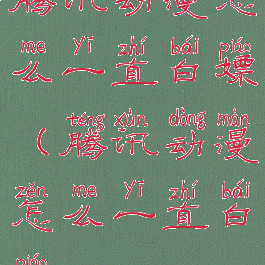 腾讯动漫怎
me yī zhí bái piáo
么一直白嫖
téng xùn dòng màn
（腾讯动漫
zěn me yī zhí bái
怎么一直白
piáo